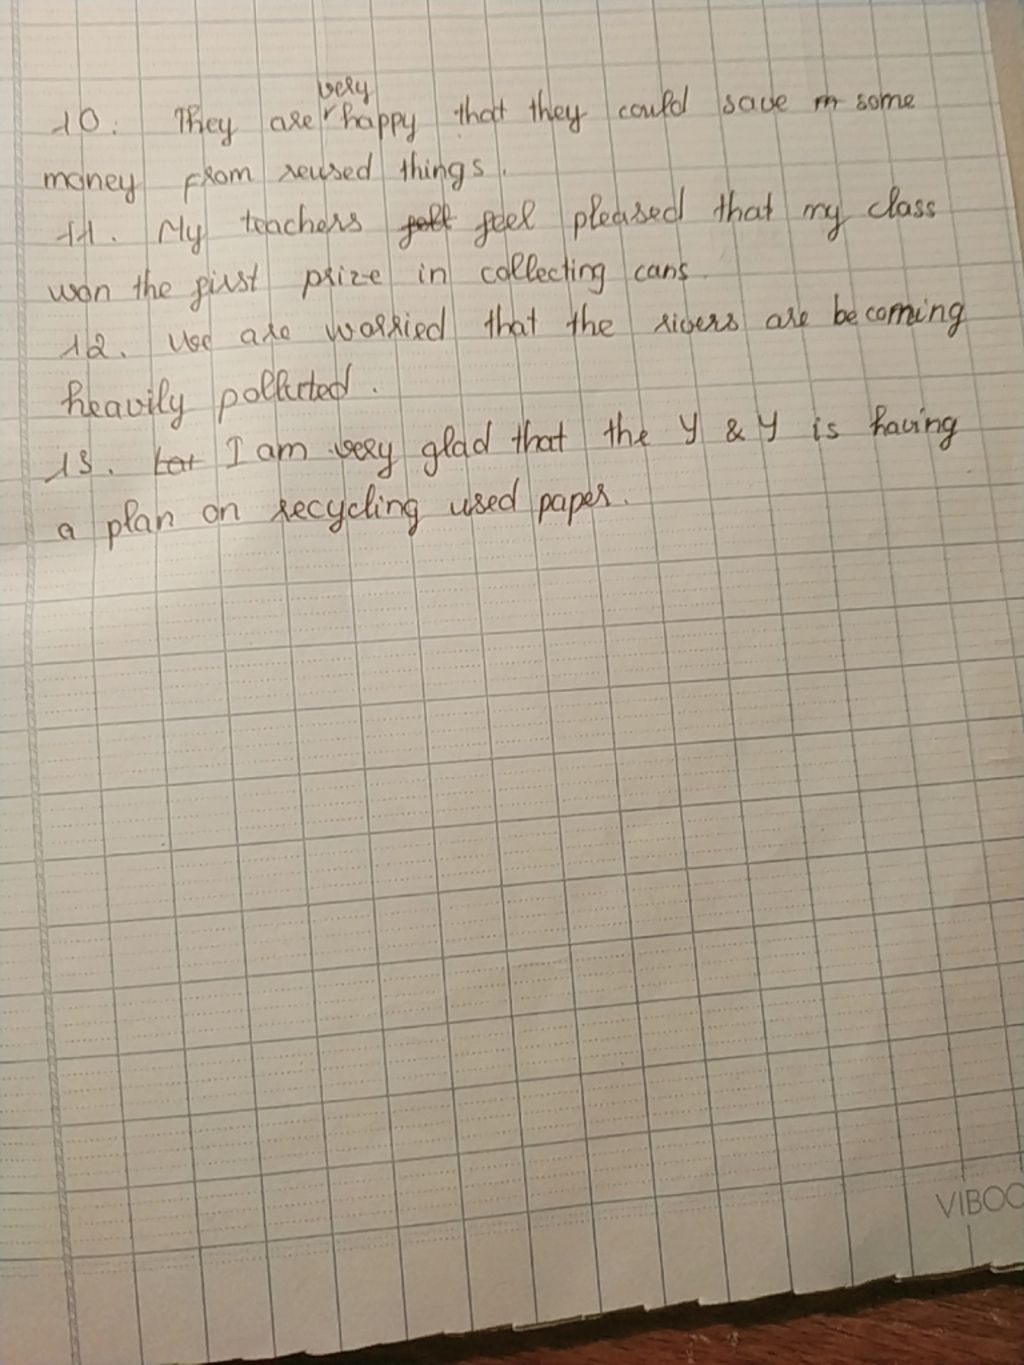 10. They are very happy that they could save m some
money from reused things.
11. My teachers felt feel pleased that my class
won the first prize in collecting cans.
12. We are worried that the rivers are becoming
heavily polluted.
13. I am very glad that the Y & Y is having
a plan on recycling used paper.
VIBOO